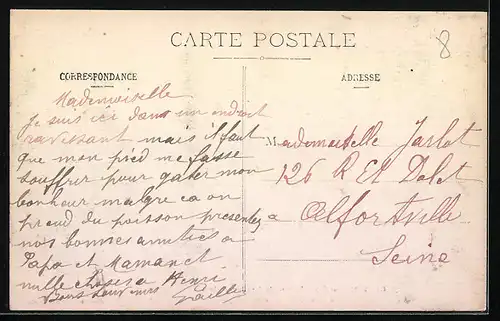 8
CARTE POSTALE
CORRESPONDANCE
ADRESSE
Mademoiselle
Je suis ici dans un endroit
ravissant mais il faut
que mon pied me fasse
souffrir pour gater mon
bonheur malgre ca on
prend du poisson presentez
nos bonnes amities a
Papa et Maman et
mille choses a Henri
Bons souvenirs
Mademoiselle Jarlot
126 R Et Dolet
a Alfortville
Seine